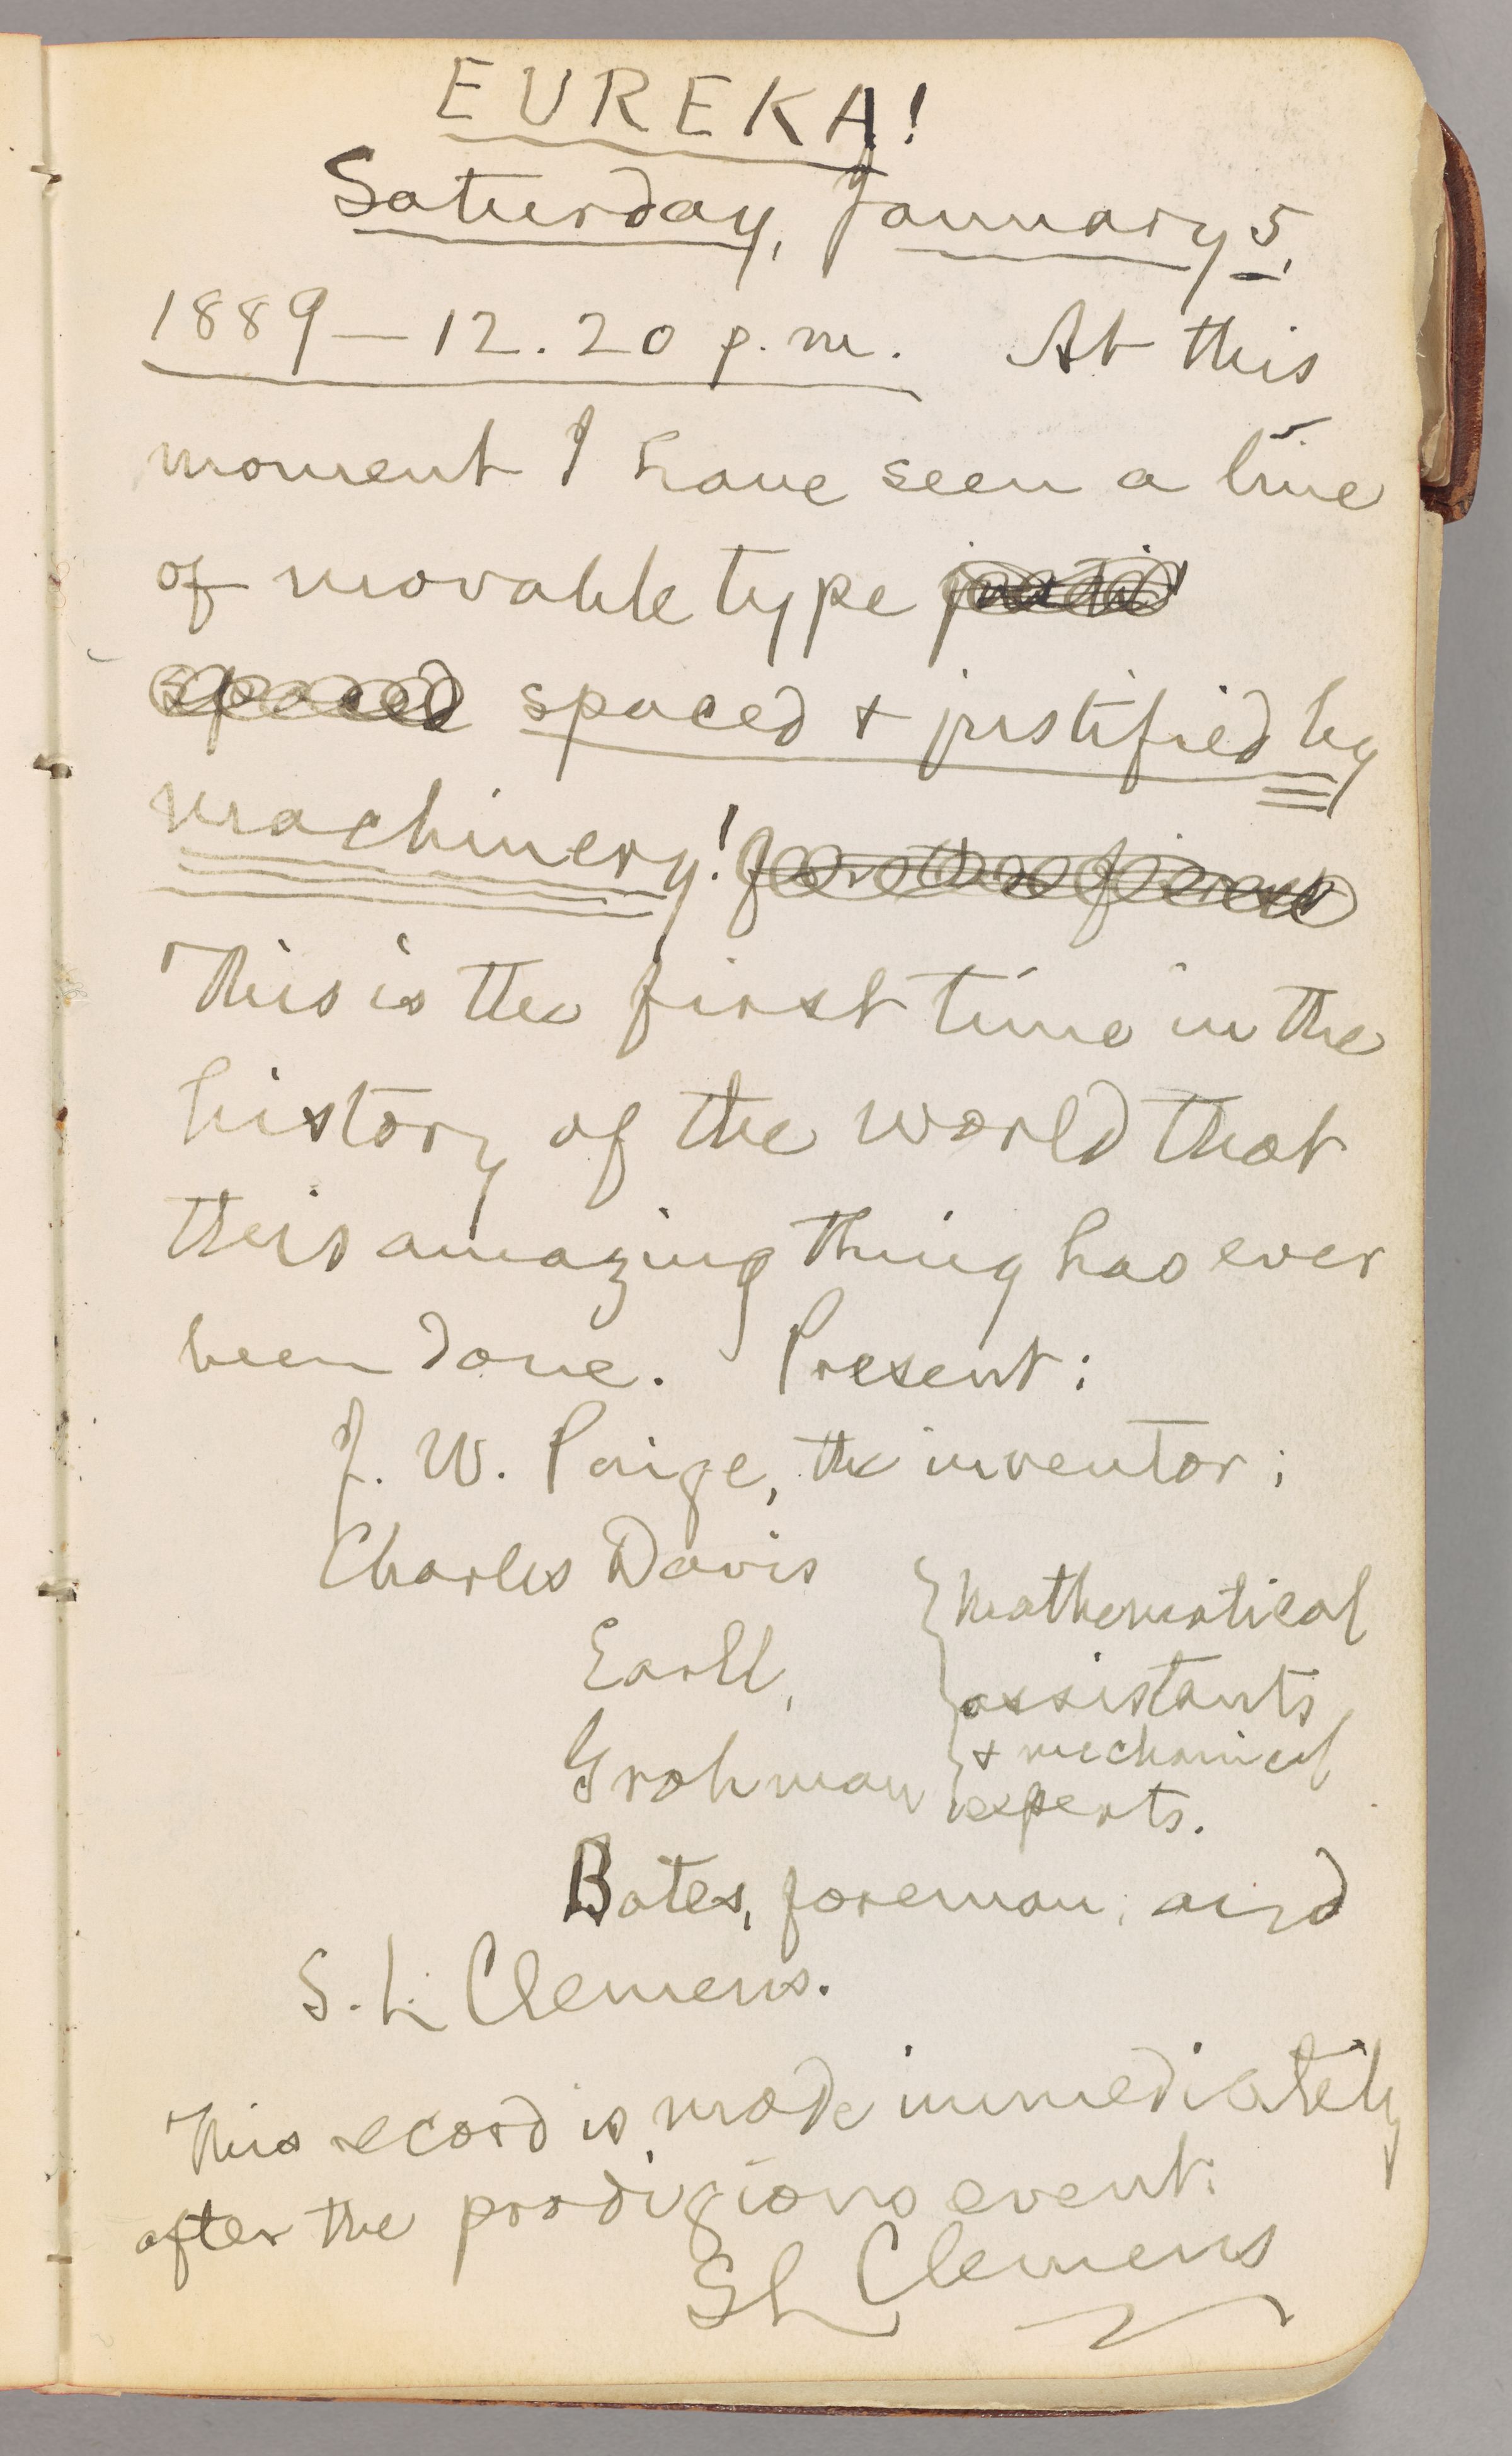 EUREKA!
Saturday, January 5,
1889 — 12.20 p.m. At this
moment I have seen a line
of movable type
spaced spaced & justified by
machinery! for the first
This is the first time in the
history of the world that
this amazing thing has ever
been done. Present:
J. W. Paige, the inventor;
Charles Davis
Earll,
Grohman
} mathematical
assistants
& mechanical
experts.
Bates, foreman; and
S. L. Clemens.
This record is made immediately
after the prodigious event.
SL Clemens